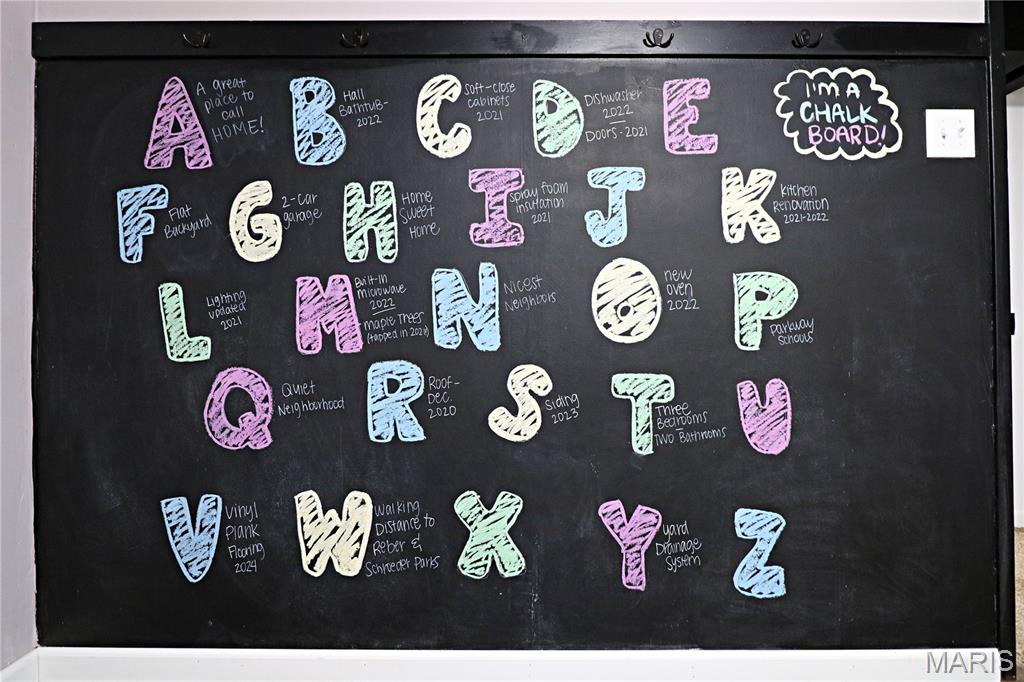 A A great
place to
call
HOME!
B Hall
Bathtub-
2022
C Soft-close
cabinets
2021
D Dishwasher
2022
Doors-2021
E
I'M A
CHALK
BOARD!
F Flat
Backyard
G 2-car
garage
H Home
Sweet
Home
I spray foam
insulation
2021
J
K Kitchen
Renovation
2021-2022
L Lighting
updated
2021
M Built-in
microwave
2022
Maple Trees
(tapped in 2021)
N Nicest
Neighbors
O new
oven
2022
P Parkway
Schools
Q Quiet
Neighborhood
R Roof-
Dec.
2020
S Siding
2023
T Three
Bedrooms
Two Bathrooms
U
V Vinyl
Plank
Flooring
2024
W Walking
Distance to
Reber &
Schroeder Parks
X
Y Yard
Drainage
System
Z
MARIS